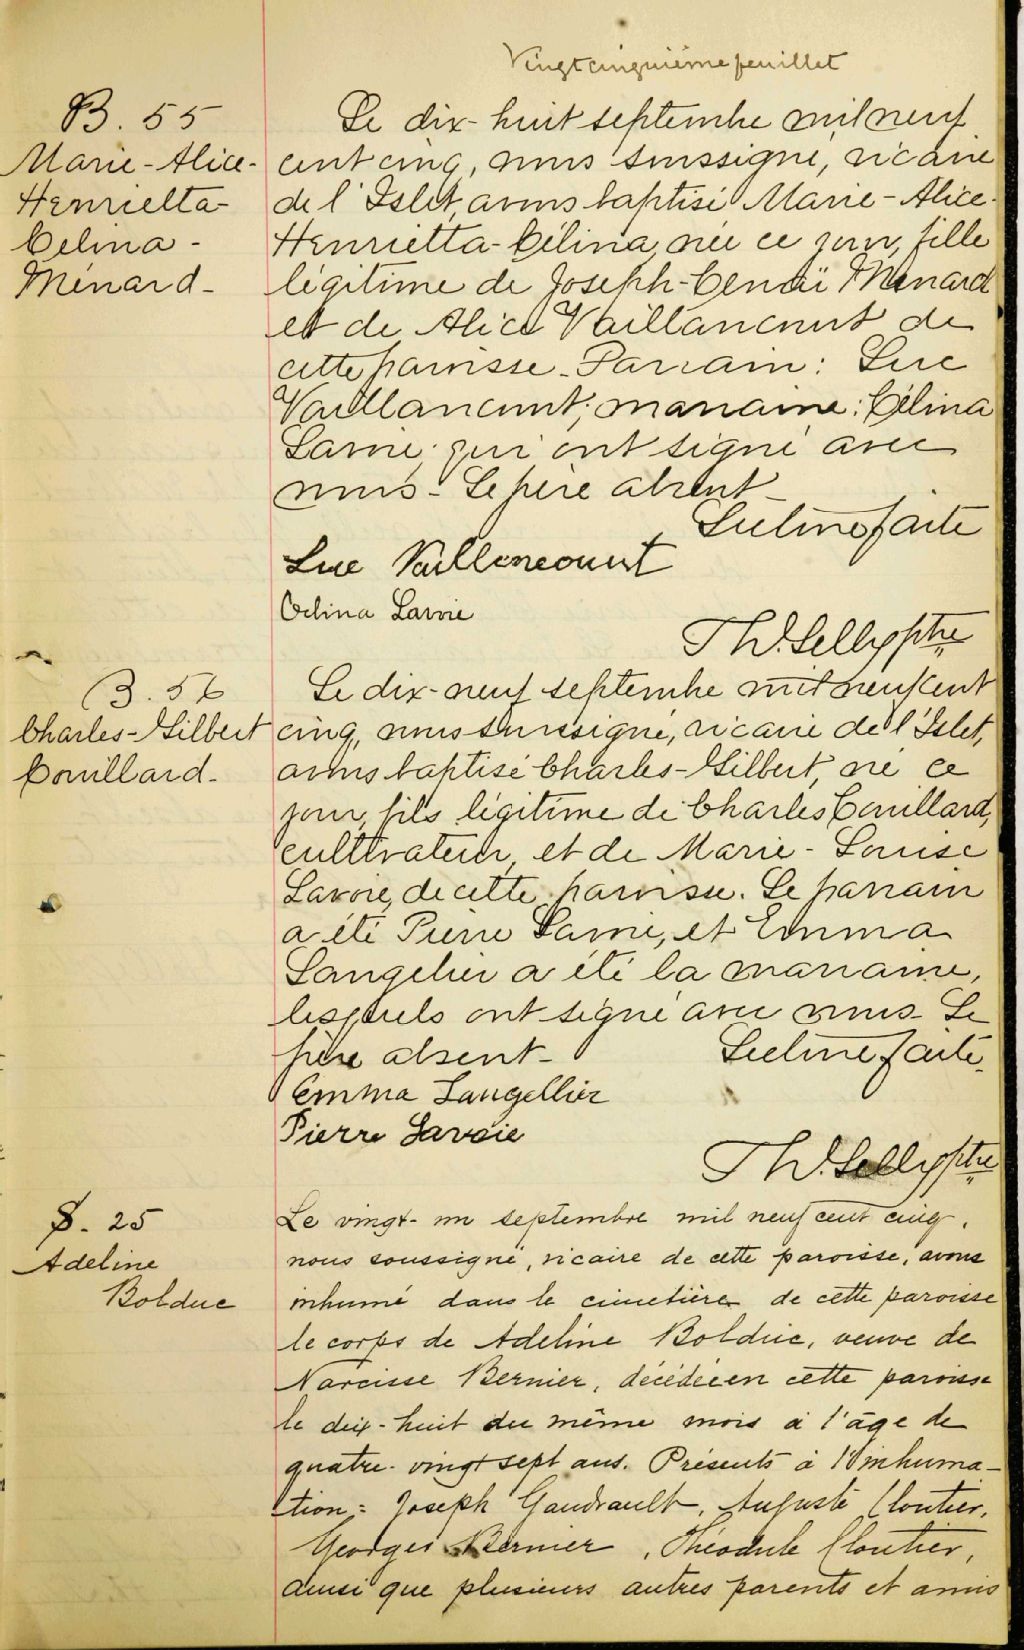 Vingtcinquième feuillet
B. 55
Marie-Alice-
Henrietta-
Célina-
Ménard-
Le dix-huit septembre mil neuf
cent cinq, nous soussigné, vicaire
de l'Islet, avons baptisé Marie-Alice-
Henrietta-Célina, née ce jour, fille
légitime de Joseph- Ménard
et de Alice Vaillancourt de
cette paroisse. Parrain: Luc
Vaillancourt; marraine: Célina
Lavoie; qui ont signé avec
nous- Le père absent-
Lecture faite
Luc Vaillencourt
Célina Lavoie
Th. Lelly ptre
B. 56
Charles-Gilbert
Couillard-
Le dix-neuf septembre mil neuf cent
cinq, nous soussigné, vicaire de l'Islet,
avons baptisé Charles-Gilbert, né ce
jour, fils légitime de Charles Couillard,
cultivateur, et de Marie-Louise
Lavoie, de cette paroisse. Le parrain
a été Pierre Lavoie, et Emma
Langelier a été la marraine,
lesquels ont signé avec nous- Le
père absent- Lecture faite.
Emma Langellier
Pierre Lavoie
Th. Lelly ptre
S. 25
Adeline
Bolduc
Le vingt-un septembre mil neuf cent cinq,
nous soussigné, vicaire de cette paroisse, avons
inhumé dans le cimetière de cette paroisse
le corps de Adeline Bolduc, veuve de
Narcisse Bernier, décédée en cette paroisse
le dix-huit du même mois à l'âge de
quatre-vingt sept ans. Présents à l'inhuma-
tion: Joseph Gaudrault, Auguste Cloutier,
Georges Bernier, Théodule Cloutier,
ainsi que plusieurs autres parents et amis